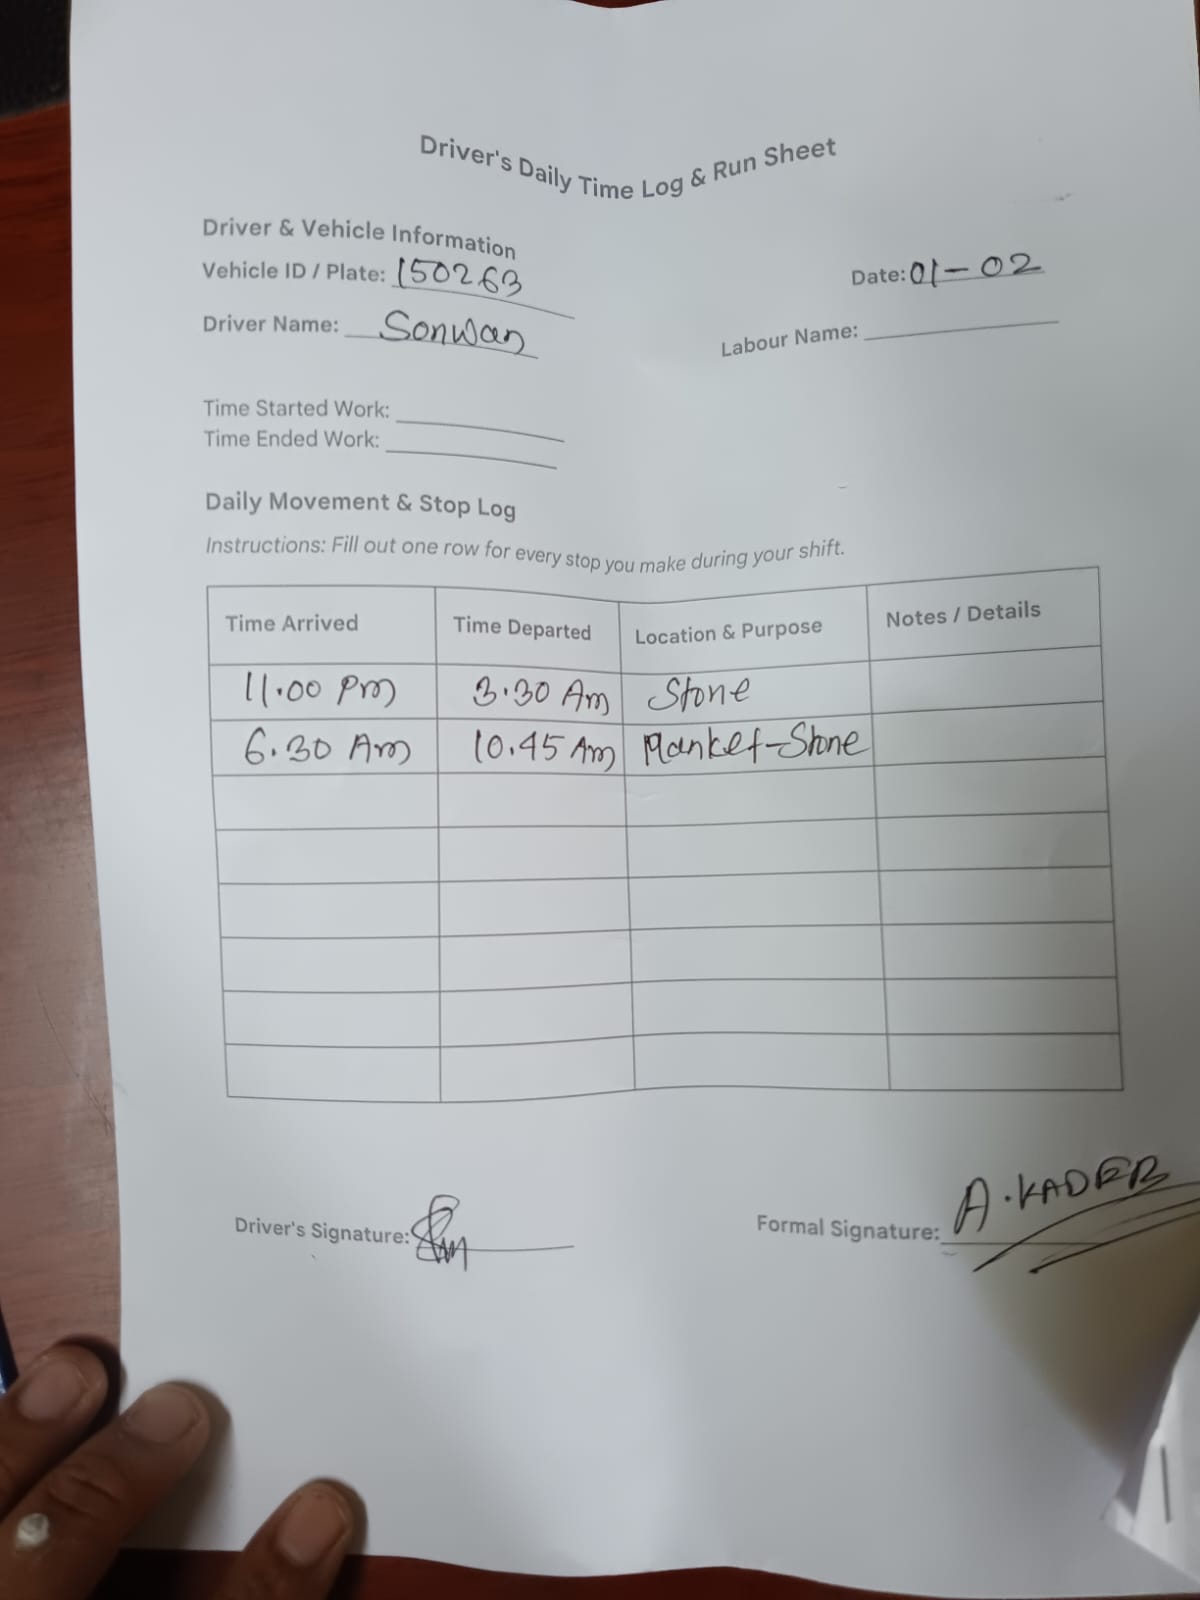 Driver's Daily Time Log & Run Sheet
Driver & Vehicle Information
Vehicle ID / Plate: 150263
Date: 01-02
Driver Name: Sonwan
Labour Name:
Time Started Work:
Time Ended Work:
Daily Movement & Stop Log
Instructions: Fill out one row for every stop you make during your shift.
Time Arrived Time Departed Location & Purpose Notes / Details
11.00 Pm 3.30 Am Stone
6.30 Am 10.45 Am Manket-Stone
Driver's Signature:
Formal Signature: A.KADER